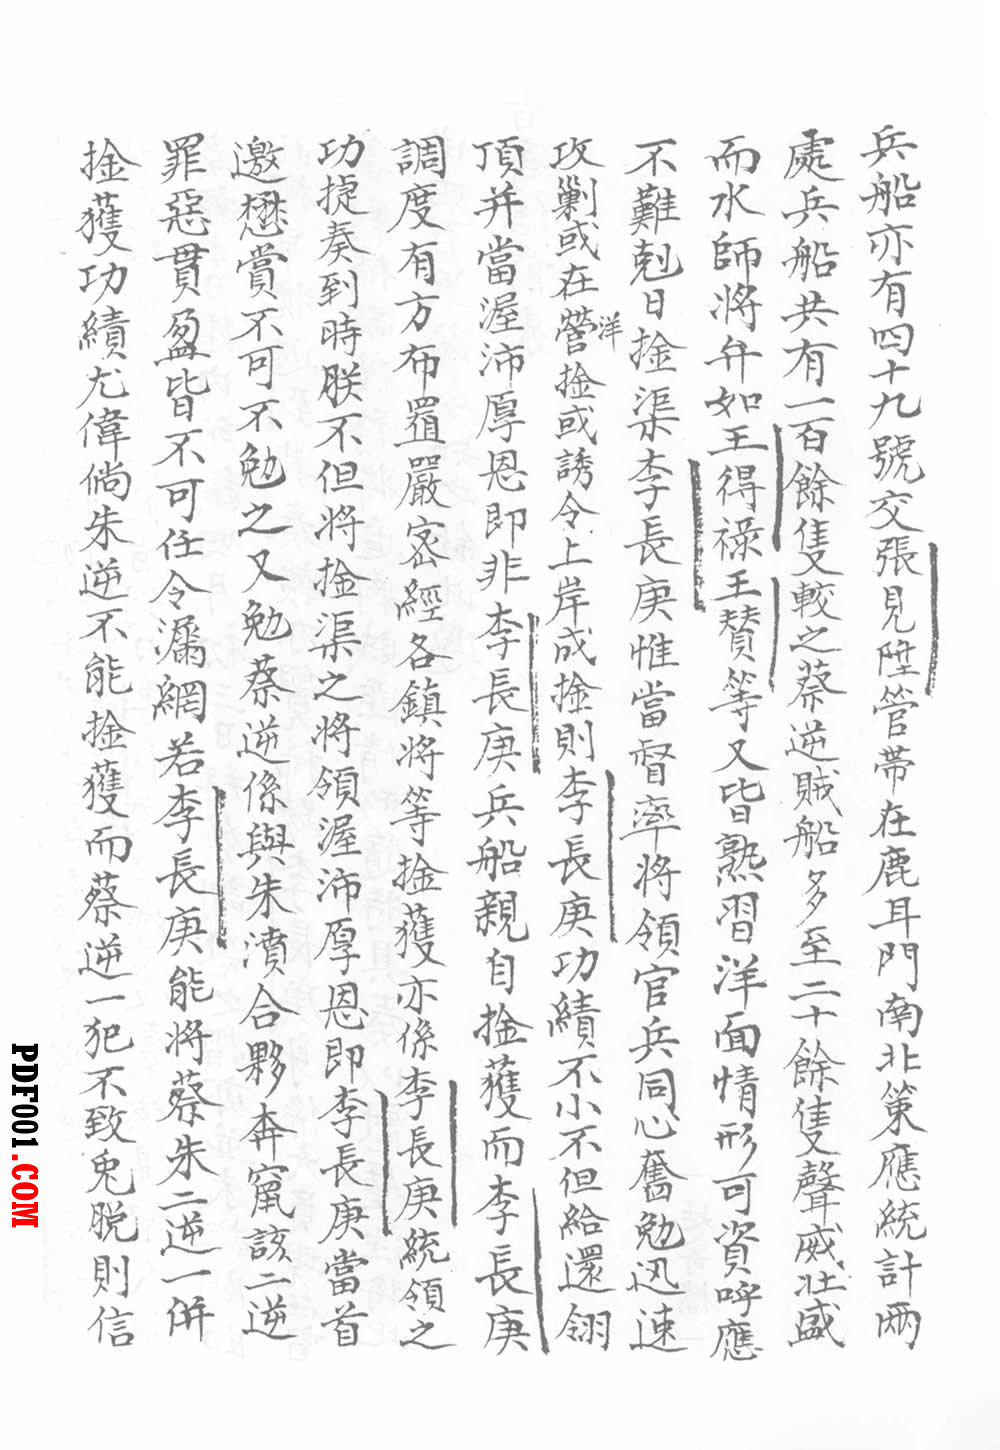 兵船亦有四十九號交張見陞管帶在鹿耳門南北策應統計兩
處兵船共有一百餘隻較之蔡逆賊船多至二十餘隻聲威壯盛
而水師將弁如王得祿王贊等又皆熟習洋面情形可資呼應
不難剋日捦渠李長庚惟當督率將領官兵同心奮勉迅速
攻剿或在營洋捦或誘令上岸成捦則李長庚功績不小不但給還翎
頂并當渥沛厚恩即非李長庚兵船親自捦獲而李長庚
調度有方布置嚴密經各鎮將等捦獲亦係李長庚統領之
功捷奏到時朕不但將捦渠之將領渥沛厚恩即李長庚當首
邀懋賞不可不勉之又勉蔡逆係與朱濆合夥奔竄該二逆
罪惡貫盈皆不可任令漏網若李長庚能將蔡朱二逆一併
捦獲功績尤偉倘朱逆不能捦獲而蔡逆一犯不致兎脫則信
PDF001.COM